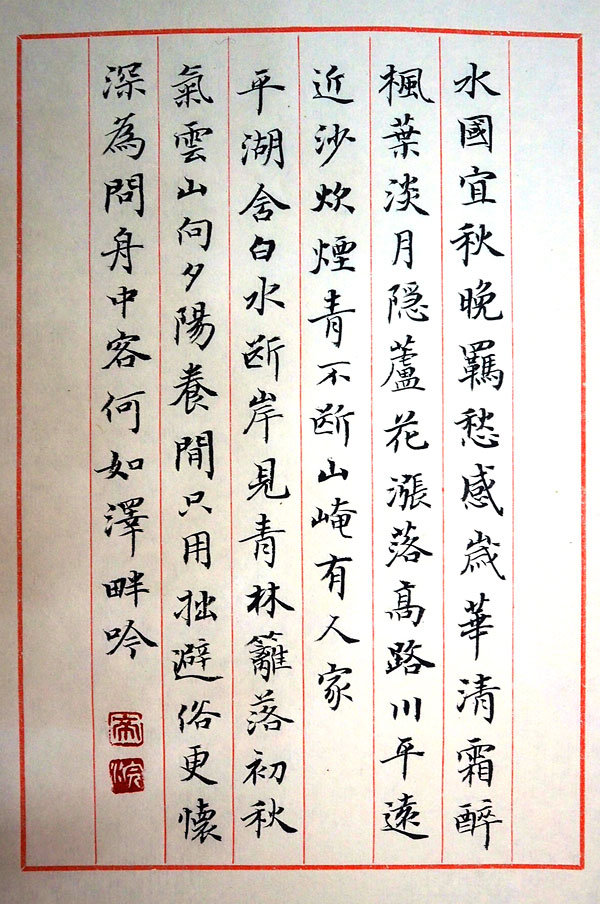 水國宜秋晚羈愁感歲華清霜醉
楓葉淡月隱蘆花漲落高路川平遠
近沙炊煙青不斷山崦有人家
平湖舍白水斷岸見青林籬落初秋
氣雲山向夕陽養閒只用拙避俗更懷
深為問舟中容何如澤畔吟